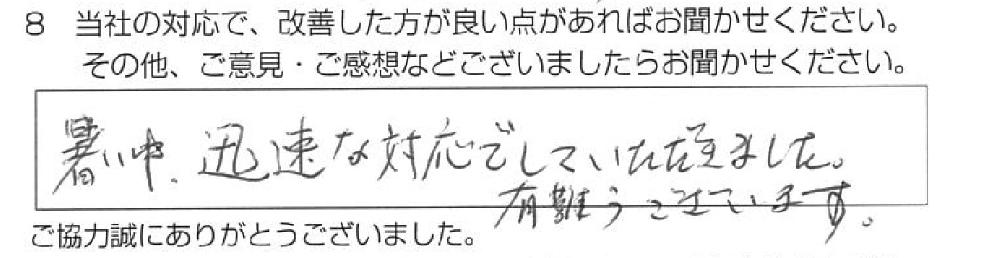 8 当社の対応で、改善した方が良い点があればお聞かせください。
その他、ご意見・ご感想などございましたらお聞かせください。
暑い中、迅速な対応でしていただきました。
有難うございます。
ご協力誠にありがとうございました。